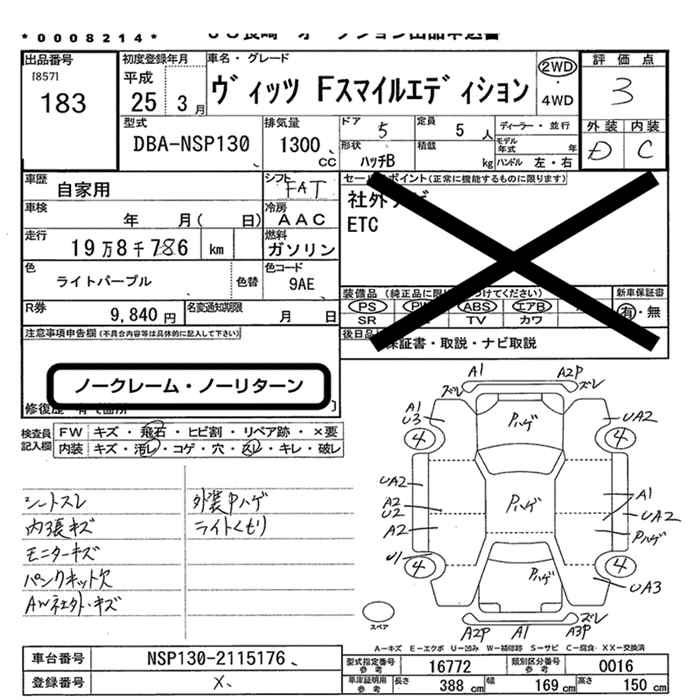 *0008214*
出品番号
[857]
183
初度登録年月
平成
25 3月
車名・グレード
ヴィッツ Fスマイルエディション
2WD
・
4WD
評価点
3
外装 内装
D C
型式
DBA-NSP130
排気量
1300 cc
ドア 5
定員 5人
形状 ハッチB
積載 kg
ディーラー・並行
モデル年式 年
ハンドル 左・右
車歴
自家用
シフト
FAT
車検
年 月( 日)
冷房
AAC
走行
19万8千786 km
燃料
ガソリン
色
ライトパープル
色替
色コード
9AE
R券
9,840円
名変通知期限
月 日
セールスポイント(正常に機能するものに限ります)
社外ナビ
ETC
装備品
PS ABS エアB
SR TV カワ
新車保証書
有・無
保証書・取説・ナビ取説
注意事項申告欄(不具合内容等は具体的に記入して下さい)
ノークレーム・ノーリターン
検査員記入欄
FW キズ・飛石・ヒビ割・リペア跡・×要
内装 キズ・汚レ・コゲ・穴・スレ・キレ・破レ
シートスレ
内張キズ
モニターキズ
パンクキット欠
AW社外・キズ
外装Pハゲ
ライトくもり
A1 A2P
ズレ ズレ
A1
U3
UA2
4 4
Pハゲ
UA2
A2
U2
A2
Pハゲ
A1
UA2
Pハゲ
U1
4 4
Pハゲ
UA3
ズレ ズレ
A2P A1 A3P
スペア
A－キズ E－エクボ U－凹み W－補修跡 S－サビ C－腐食 XX－交換済
車台番号 NSP130-2115176
登録番号 X
型式指定番号参考 16772
類別区分番号参考 0016
車庫証明用参考 長さ 388cm 幅 169cm 高さ 150cm